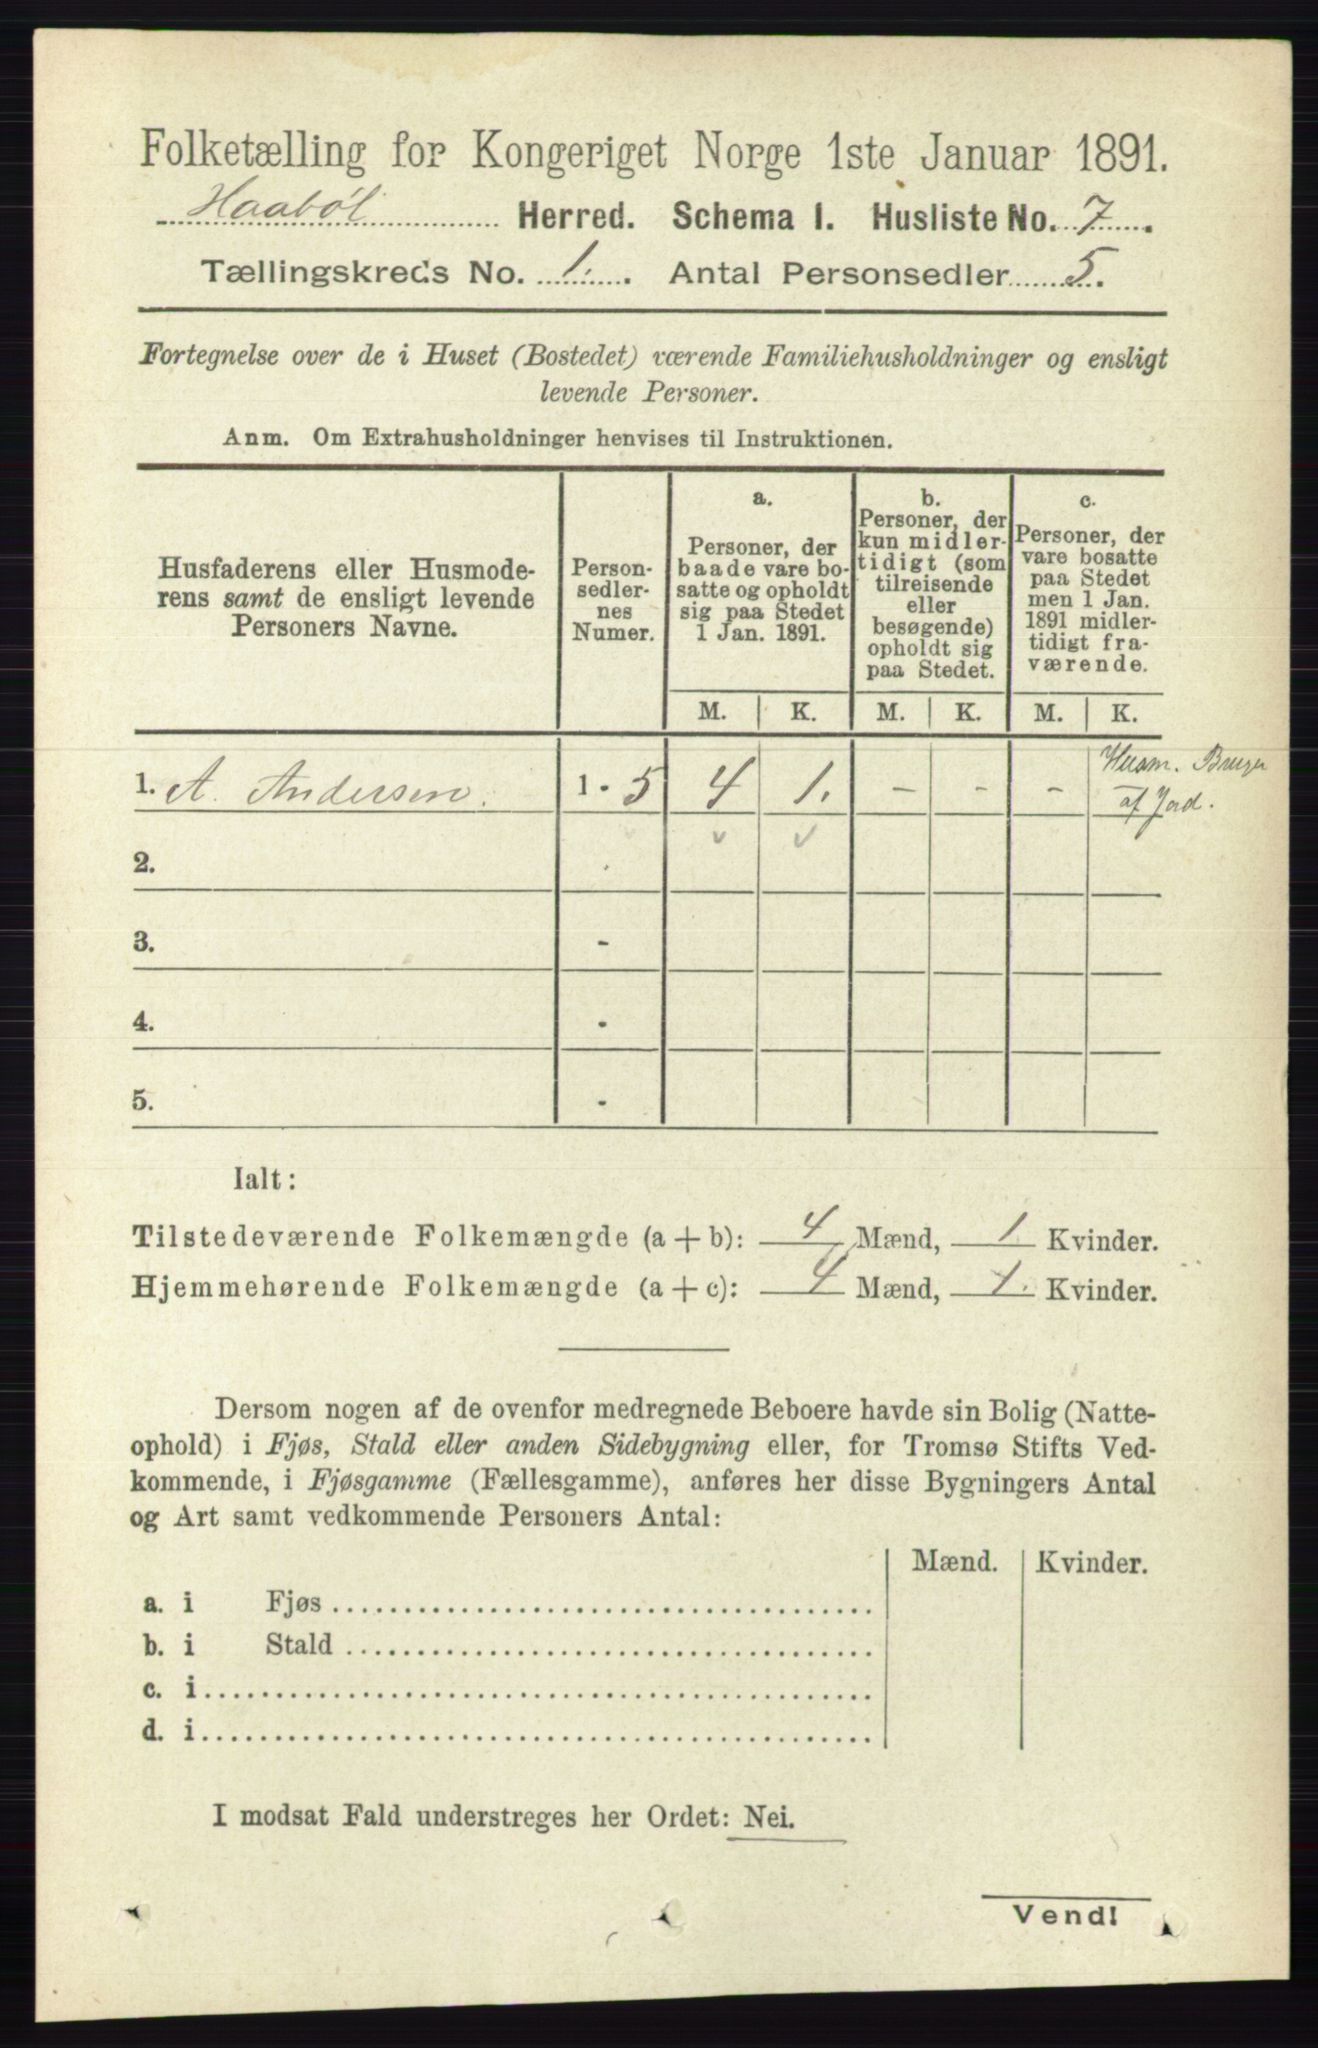 Folketælling for Kongeriget Norge 1ste Januar 1891.
Haabøl Herred. Schema I. Husliste No. 7.
Tællingskreds No. 1. Antal Personsedler 5.
Fortegnelse over de i Huset (Bostedet) værende Familiehusholdninger og ensligt
levende Personer.
Anm. Om Extrahusholdninger henvises til Instruktionen.
Husfaderens eller Husmode-
rens samt de ensligt levende
Personers Navne.
Person-
sedler-
nes
Numer.
a.
Personer, der
baade vare bo-
satte og opholdt
sig paa Stedet
1 Jan. 1891.
b.
Personer, der
kun midler-
tidigt (som
tilreisende
eller
besøgende)
opholdt sig
paa Stedet.
c.
Personer, der
vare bosatte
paa Stedet
men 1 Jan.
1891 midler-
tidigt fra-
værende.
M. K. M. K. M. K.
1. A. Andersen. 1 - 5 4 1. - - - Husm. Bruger
af Jord.
2.
3. -
4. -
5. -
Ialt:
Tilstedeværende Folkemængde (a + b): 4 Mænd, 1 Kvinder.
Hjemmehørende Folkemængde (a + c): 4 Mænd, 1. Kvinder.
Dersom nogen af de ovenfor medregnede Beboere havde sin Bolig (Natte-
ophold) i Fjøs, Stald eller anden Sidebygning eller, for Tromsø Stifts Ved-
kommende, i Fjøsgamme (Fællesgamme), anføres her disse Bygningers Antal
og Art samt vedkommende Personers Antal:
Mænd. Kvinder.
a. i Fjøs
b. i Stald
c. i
d. i
I modsat Fald understreges her Ordet: Nei.
Vend!